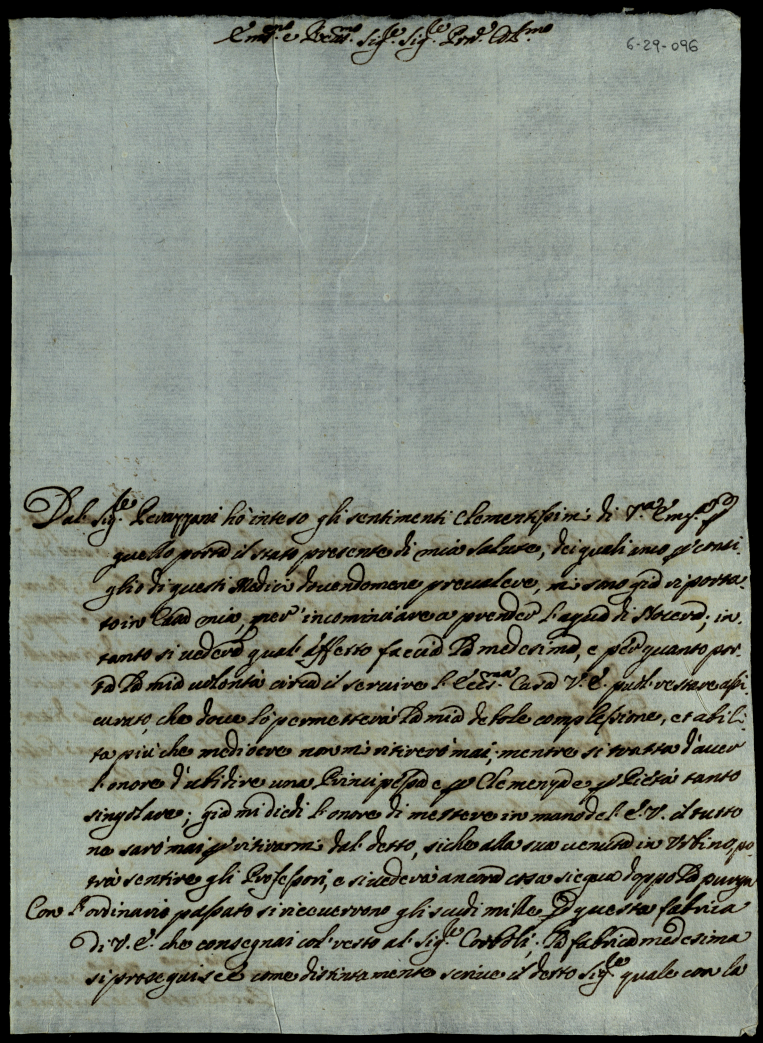 Em.mo e Rev.mo Sig.re Sig.re Pron.e Col.mo
6-29-096
Dal Sig.re Pevazzani hò inteso gli sentimenti Clementissimi di V.a Em.za p
quello porta il stato presente di mia salute, dei quali anco p consi,
glio di questi Medici dovendomene prevalere, mi sono già riporta,
to in Casa mia, per incominciare a prender l'aqua di Nocera; in,
tanto si vederà qual effetto faccia la medesima, e per quanto por,
ta la mia volontà circa il servire l'Ecc.ma Casa V. E. puol restare assi,
curato, che dove lo permetterà la mia debole complessione, et abili,
tà più che mediocre non mi ritirerò mai; mentre si tratta d'aver
l'onore d'ubidire una Principessa e p Clemenza e p Pietà tanto
singolare; già mi diedi l'onore di mettere in mano del E. V. il tutto
ne sarò mai p ritirarmi dal detto, siche alla sua venuta in Urbino po,
trà sentire gli Professori, e si vederà ancora cosa siegua doppo la purga
Con l'ordinario passato si riceverono gli scudi mille p questa fabrica
di V. E. che consegnai col resto al Sig.re Corboli. La fabrica medesima
si proseguisce come distintamente scrive il detto Sig.re quale con la